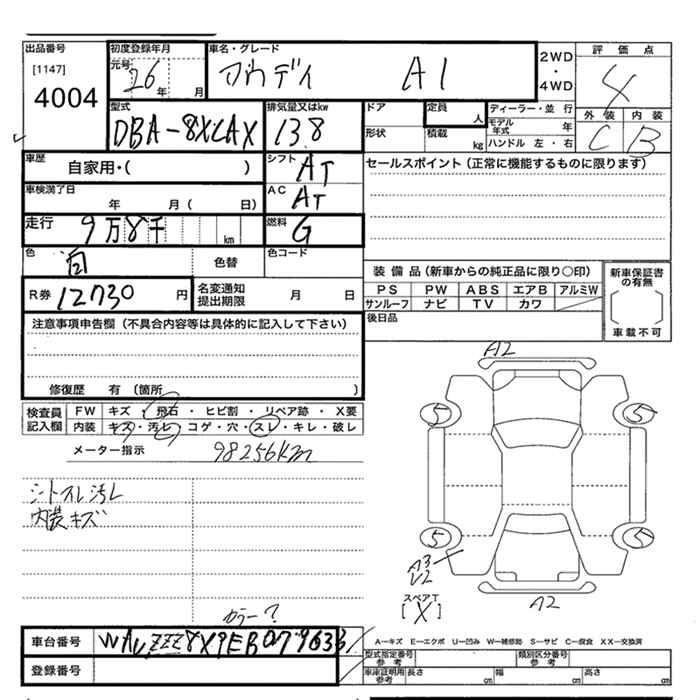 出品番号
[1147]
4004
初度登録年月
元号 26 年 月
車名・グレード
アウディ A1
2WD
・
4WD
評価点
4
型式
DBA-8XCAX
排気量又はkw
13.8
ドア
形状
定員 人
積載 kg
ディーラー・並行
モデル年式 年
ハンドル 左・右
外装 内装
C B
車歴
自家用・( )
シフト
AT
セールスポイント(正常に機能するものに限ります)
車検満了日
年 月( 日)
AC
AT
走行
9万8千 km
燃料
G
色
白
色替
色コード
R券 12730 円
名変通知
提出期限 月 日
装備品(新車からの純正品に限り〇印)
PS PW ABS エアB アルミW
サンルーフ ナビ TV カワ
後日品
新車保証書
の有無
車載不可
注意事項申告欄(不具合内容等は具体的に記入して下さい)
修復歴 有 (箇所 )
検査員
記入欄
FW キズ ・ 飛石 ・ ヒビ割 ・ リペア跡 ・ X要
内装 キズ・汚レ・コゲ・穴・スレ・キレ・破レ
メーター指示 98256Km
シートスレ汚レ
内装キズ
A2
5 5
5 5
A3
U2
スペアT
[X]
A2
カラー?
車台番号
登録番号
A−キズ E−エクボ U−凹み W−補修跡 S−サビ C−腐食 XX−交換済
型式指定番号
参考
類別区分番号
参考
車庫証明用
参考
長さ cm 幅 cm 高さ cm